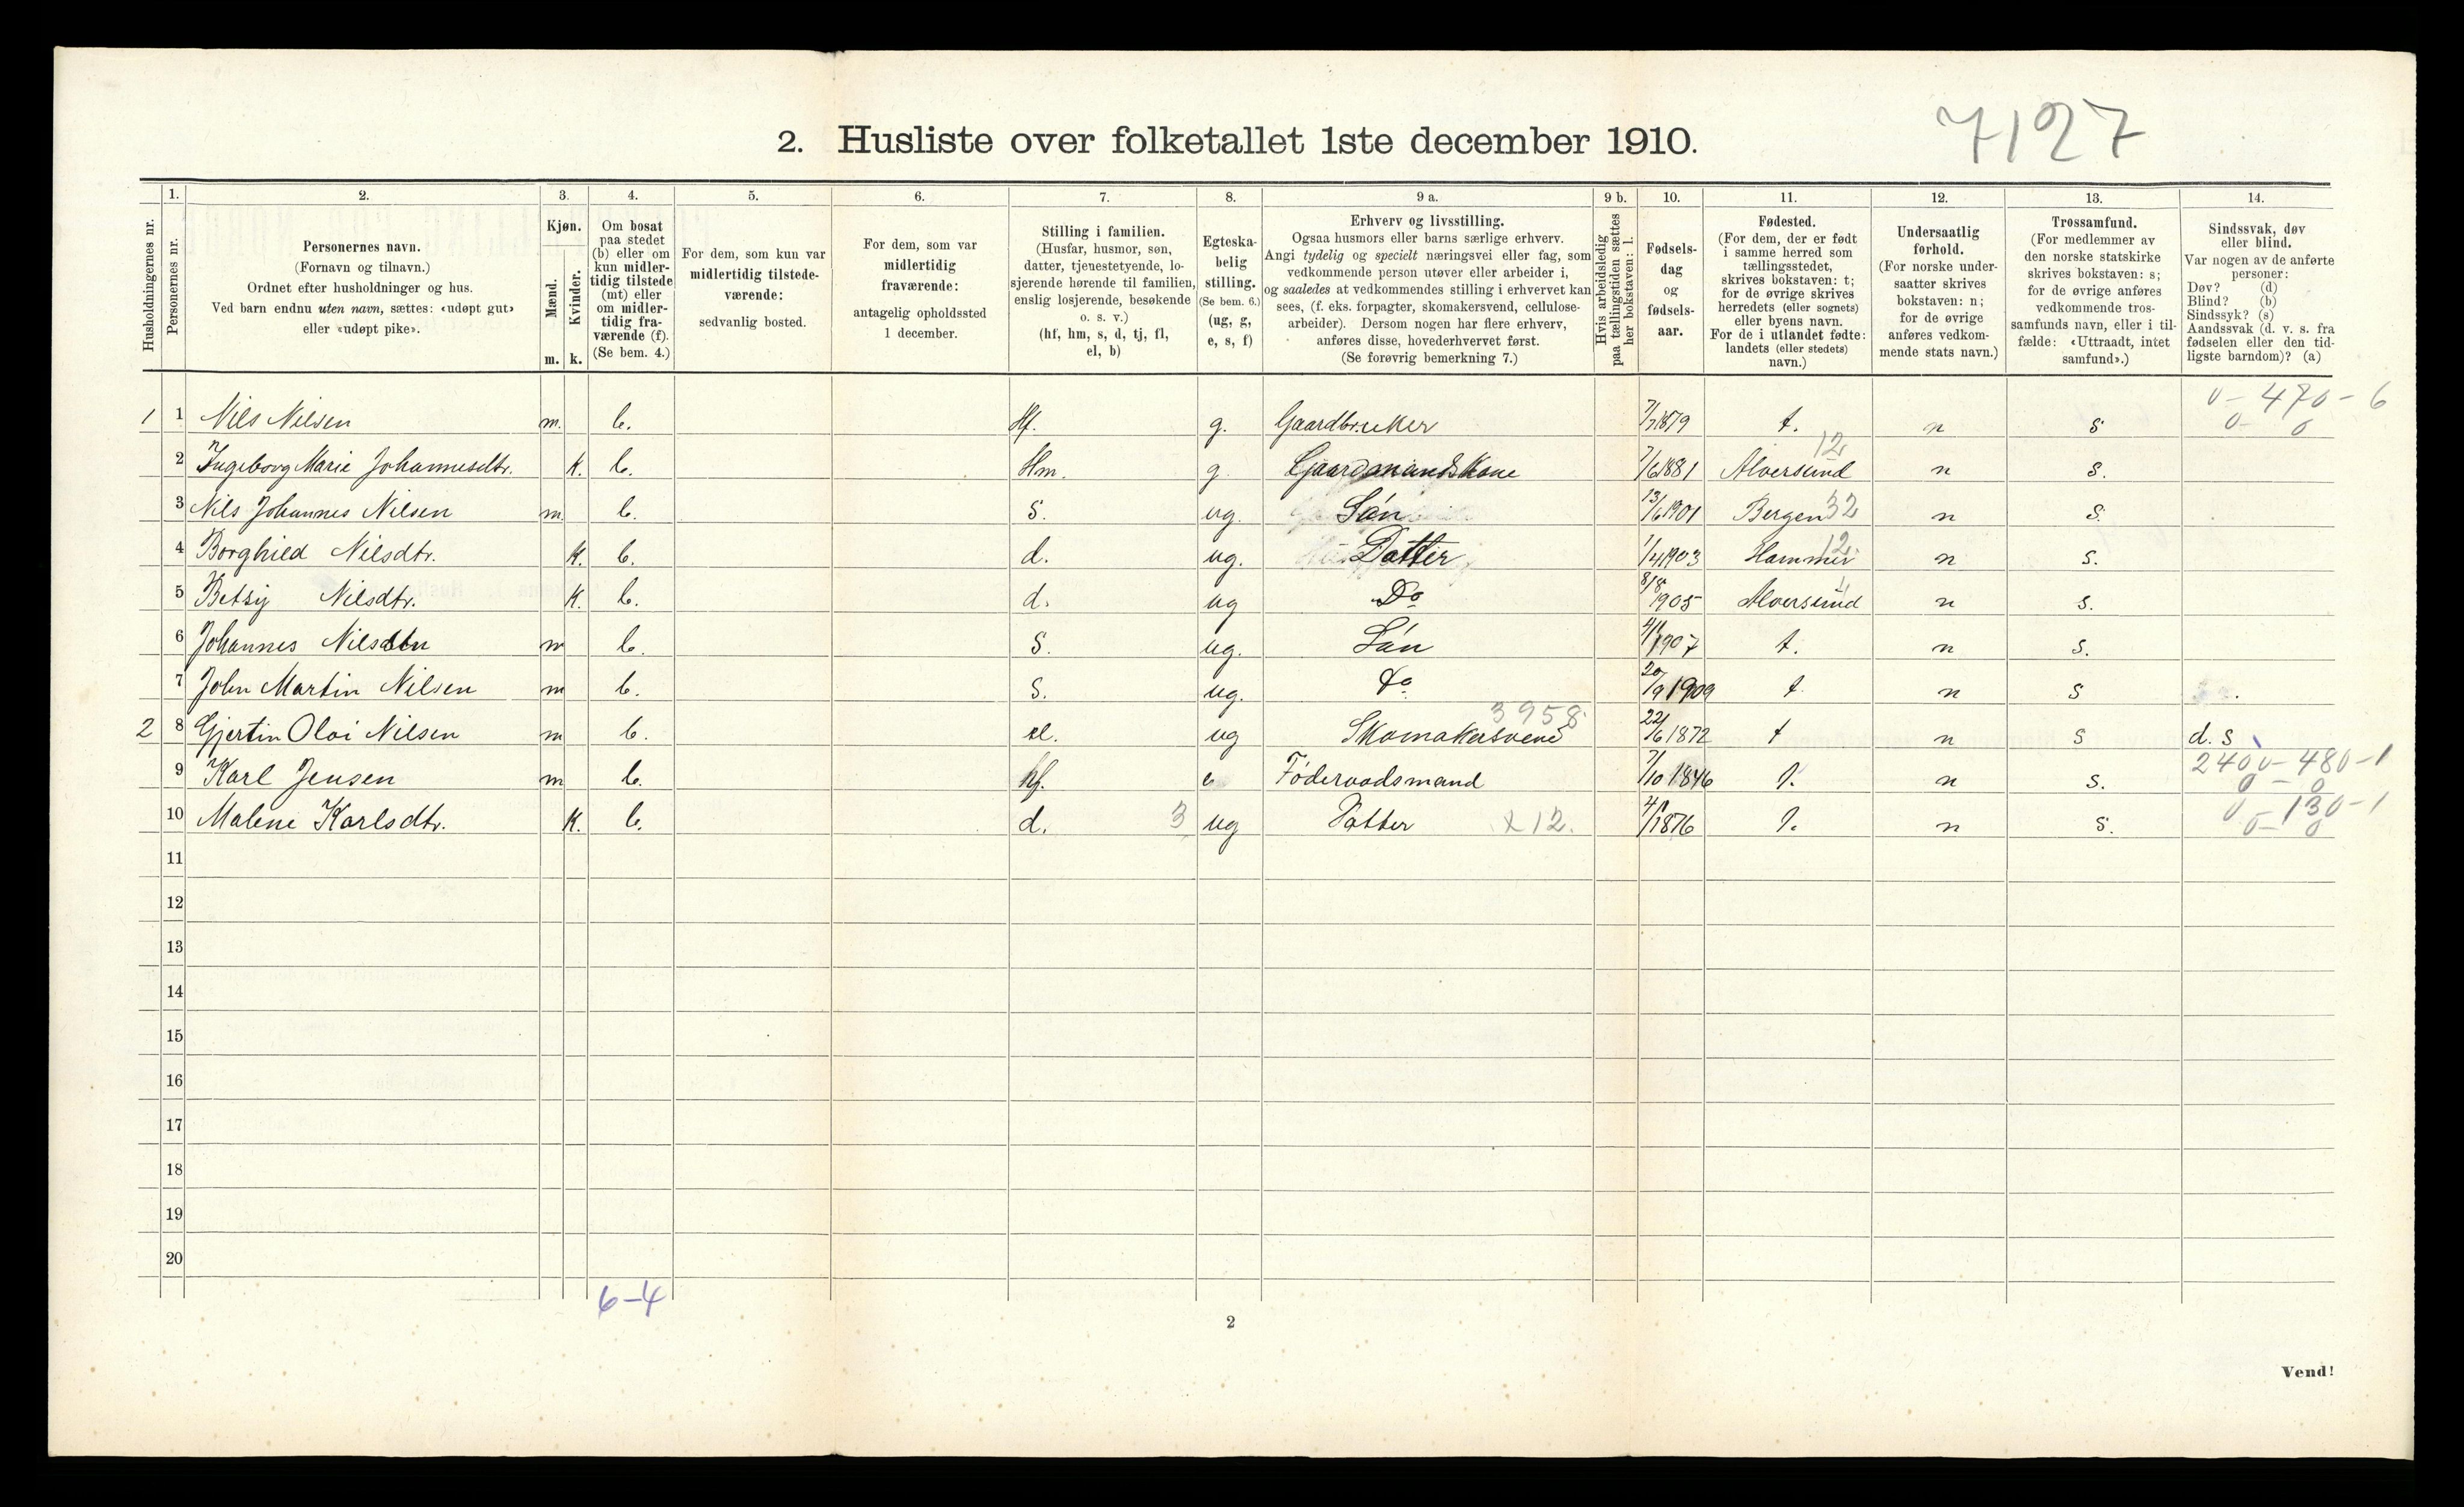 7127
2. Husliste over folketallet 1ste december 1910.
Husholdningernes nr.
1. Personernes nr.
2. Personernes navn. (Fornavn og tilnavn.) Ordnet efter husholdninger og hus. Ved barn endnu uten navn, sættes: «udøpt gut» eller «udøpt pike».
3. Kjøn. Mænd. m. Kvinder. k.
4. Om bosat paa stedet (b) eller om kun midlertidig tilstede (mt) eller om midlertidig fraværende (f). (Se bem. 4.)
5. For dem, som kun var midlertidig tilstedeværende: sedvanlig bosted.
6. For dem, som var midlertidig fraværende: antagelig opholdssted 1 december.
7. Stilling i familien. (Husfar, husmor, søn, datter, tjenestetyende, losjerende hørende til familien, enslig losjerende, besøkende o. s. v.) (hf, hm, s, d, tj, fl, el, b)
8. Egteskabelig stilling. (Se bem. 6.) (ug, g, e, s, f)
9 a. Erhverv og livsstilling. Ogsaa husmors eller barns særlige erhverv. Angi tydelig og specielt næringsvei eller fag, som vedkommende person utøver eller arbeider i, og saaledes at vedkommendes stilling i erhvervet kan sees, (f. eks. forpagter, skomakersvend, cellulosearbeider). Dersom nogen har flere erhverv, anføres disse, hovederhvervet først. (Se forøvrig bemerkning 7.)
9 b. Hvis arbeidsledig paa tællingstiden sættes her bokstaven: l.
10. Fødselsdag og fødselsaar.
11. Fødested. (For dem, der er født i samme herred som tællingsstedet, skrives bokstaven: t; for de øvrige skrives herredets (eller sognets) eller byens navn. For de i utlandet fødte: landets (eller stedets) navn.)
12. Undersaatlig forhold. (For norske undersaatter skrives bokstaven: n; for de øvrige anføres vedkommende stats navn.)
13. Trossamfund. (For medlemmer av den norske statskirke skrives bokstaven: s; for de øvrige anføres vedkommende trossamfunds navn, eller i tilfælde: «Uttraadt, intet samfund».)
14. Sindssvak, døv eller blind. Var nogen av de anførte personer: Døv? (d) Blind? (b) Sindssyk? (s) Aandssvak (d. v. s. fra fødselen eller den tidligste barndom)? (a)
0 - 470 - 6
1 1 Nils Nilsen m. b. Hf. g. Gaardbruker 7/7 1879 t. n s 0 - 0
12
2 Ingeborg Marie Johannesdtr. k. b. Hm. g. Gaardmandskone 7/6 1881 Alversund n s.
3 Nils Johannes Nilsen m. b. S. ug. Sán 13/6 1901 Bergen 32 n s.
4 Borghild Nilsdtr. k. b. d. ug. Datter 1/4 1903 Hammer 12 n s.
5 Betsy Nilsdtr. k. b. d. ug Do 8/8 1905 Alversund n s.
6 Johannes Nilsen m b. S. ug. Sán 4/1 1907 t. n s.
7 John Martin Nilsen m b. S. ug. Do 20/9 1909 t n s
3958
2 8 Gjertin Olai Nilsen m b. el. ug Skomakersvend 22/6 1872 t n s d. s
2400 - 480 - 1
9 Karl Jensen m b. hf. e Föderaadsmand 7/10 1846 n s. 0 - 0
0 - 130 - 1
10 Malene Karlsdtr. k. b. d. 3 ug Datter x 12. 4/1 1876 n s. 0 - 0
11
12
13
14
15
16
17
18
19
20
6-4
2
Vend!